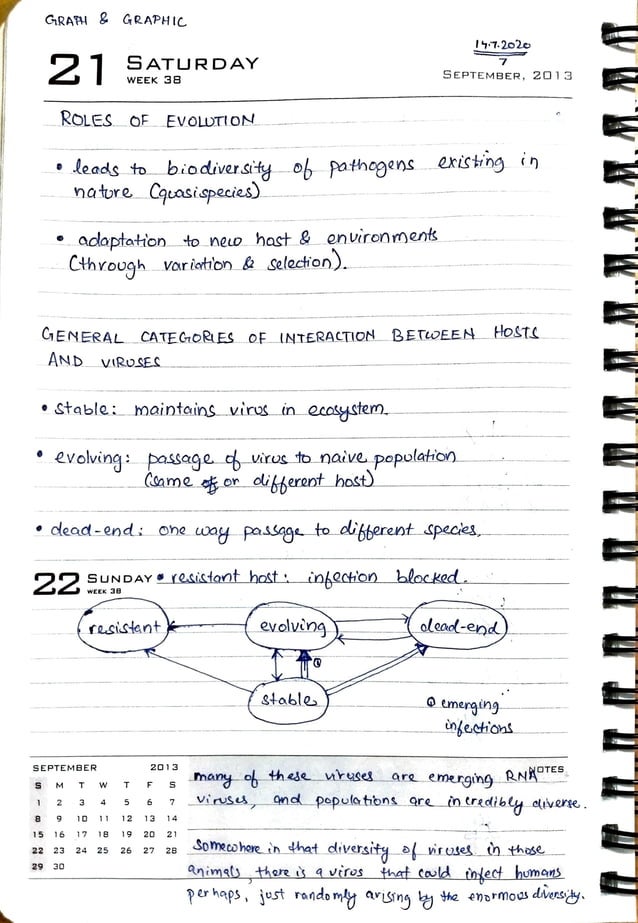 GRAPH & GRAPHIC
14.7.2020
7
21 SATURDAY
WEEK 38
SEPTEMBER, 2013
ROLES OF EVOLUTION
• leads to biodiversity of pathogens existing in
nature (quasispecies)
• adaptation to new host & environments
(through variation & selection).
GENERAL CATEGORIES OF INTERACTION BETWEEN HOSTS
AND VIRUSES
• stable: maintains virus in ecosystem.
• evolving: passage of virus to naive population
(same or different host)
• dead-end: one way passage to different species.
22 SUNDAY
WEEK 38
• resistant host: infection blocked.
resistant evolving dead-end
①
stable
① emerging
infections
SEPTEMBER 2013
S M T W T F S
1 2 3 4 5 6 7
8 9 10 11 12 13 14
15 16 17 18 19 20 21
22 23 24 25 26 27 28
29 30
NOTES
many of these viruses are emerging RNA
viruses, and populations are incredibly diverse.
Somewhere in that diversity of viruses in those
animals there is a virus that could infect humans
perhaps, just randomly arising by the enormous diversity.